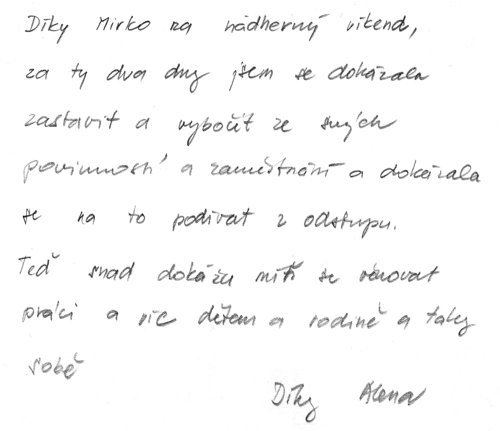 Díky Mirko za nádherný víkend,
za ty dva dny jsem se dokázala
zastavit a vybočit ze svých
povinností a zaměstnání a dokázala
se na to podívat z odstupu.
Teď snad dokážu míň se věnovat
práci a víc dětem a rodině a taky
sobě
Díky Alena